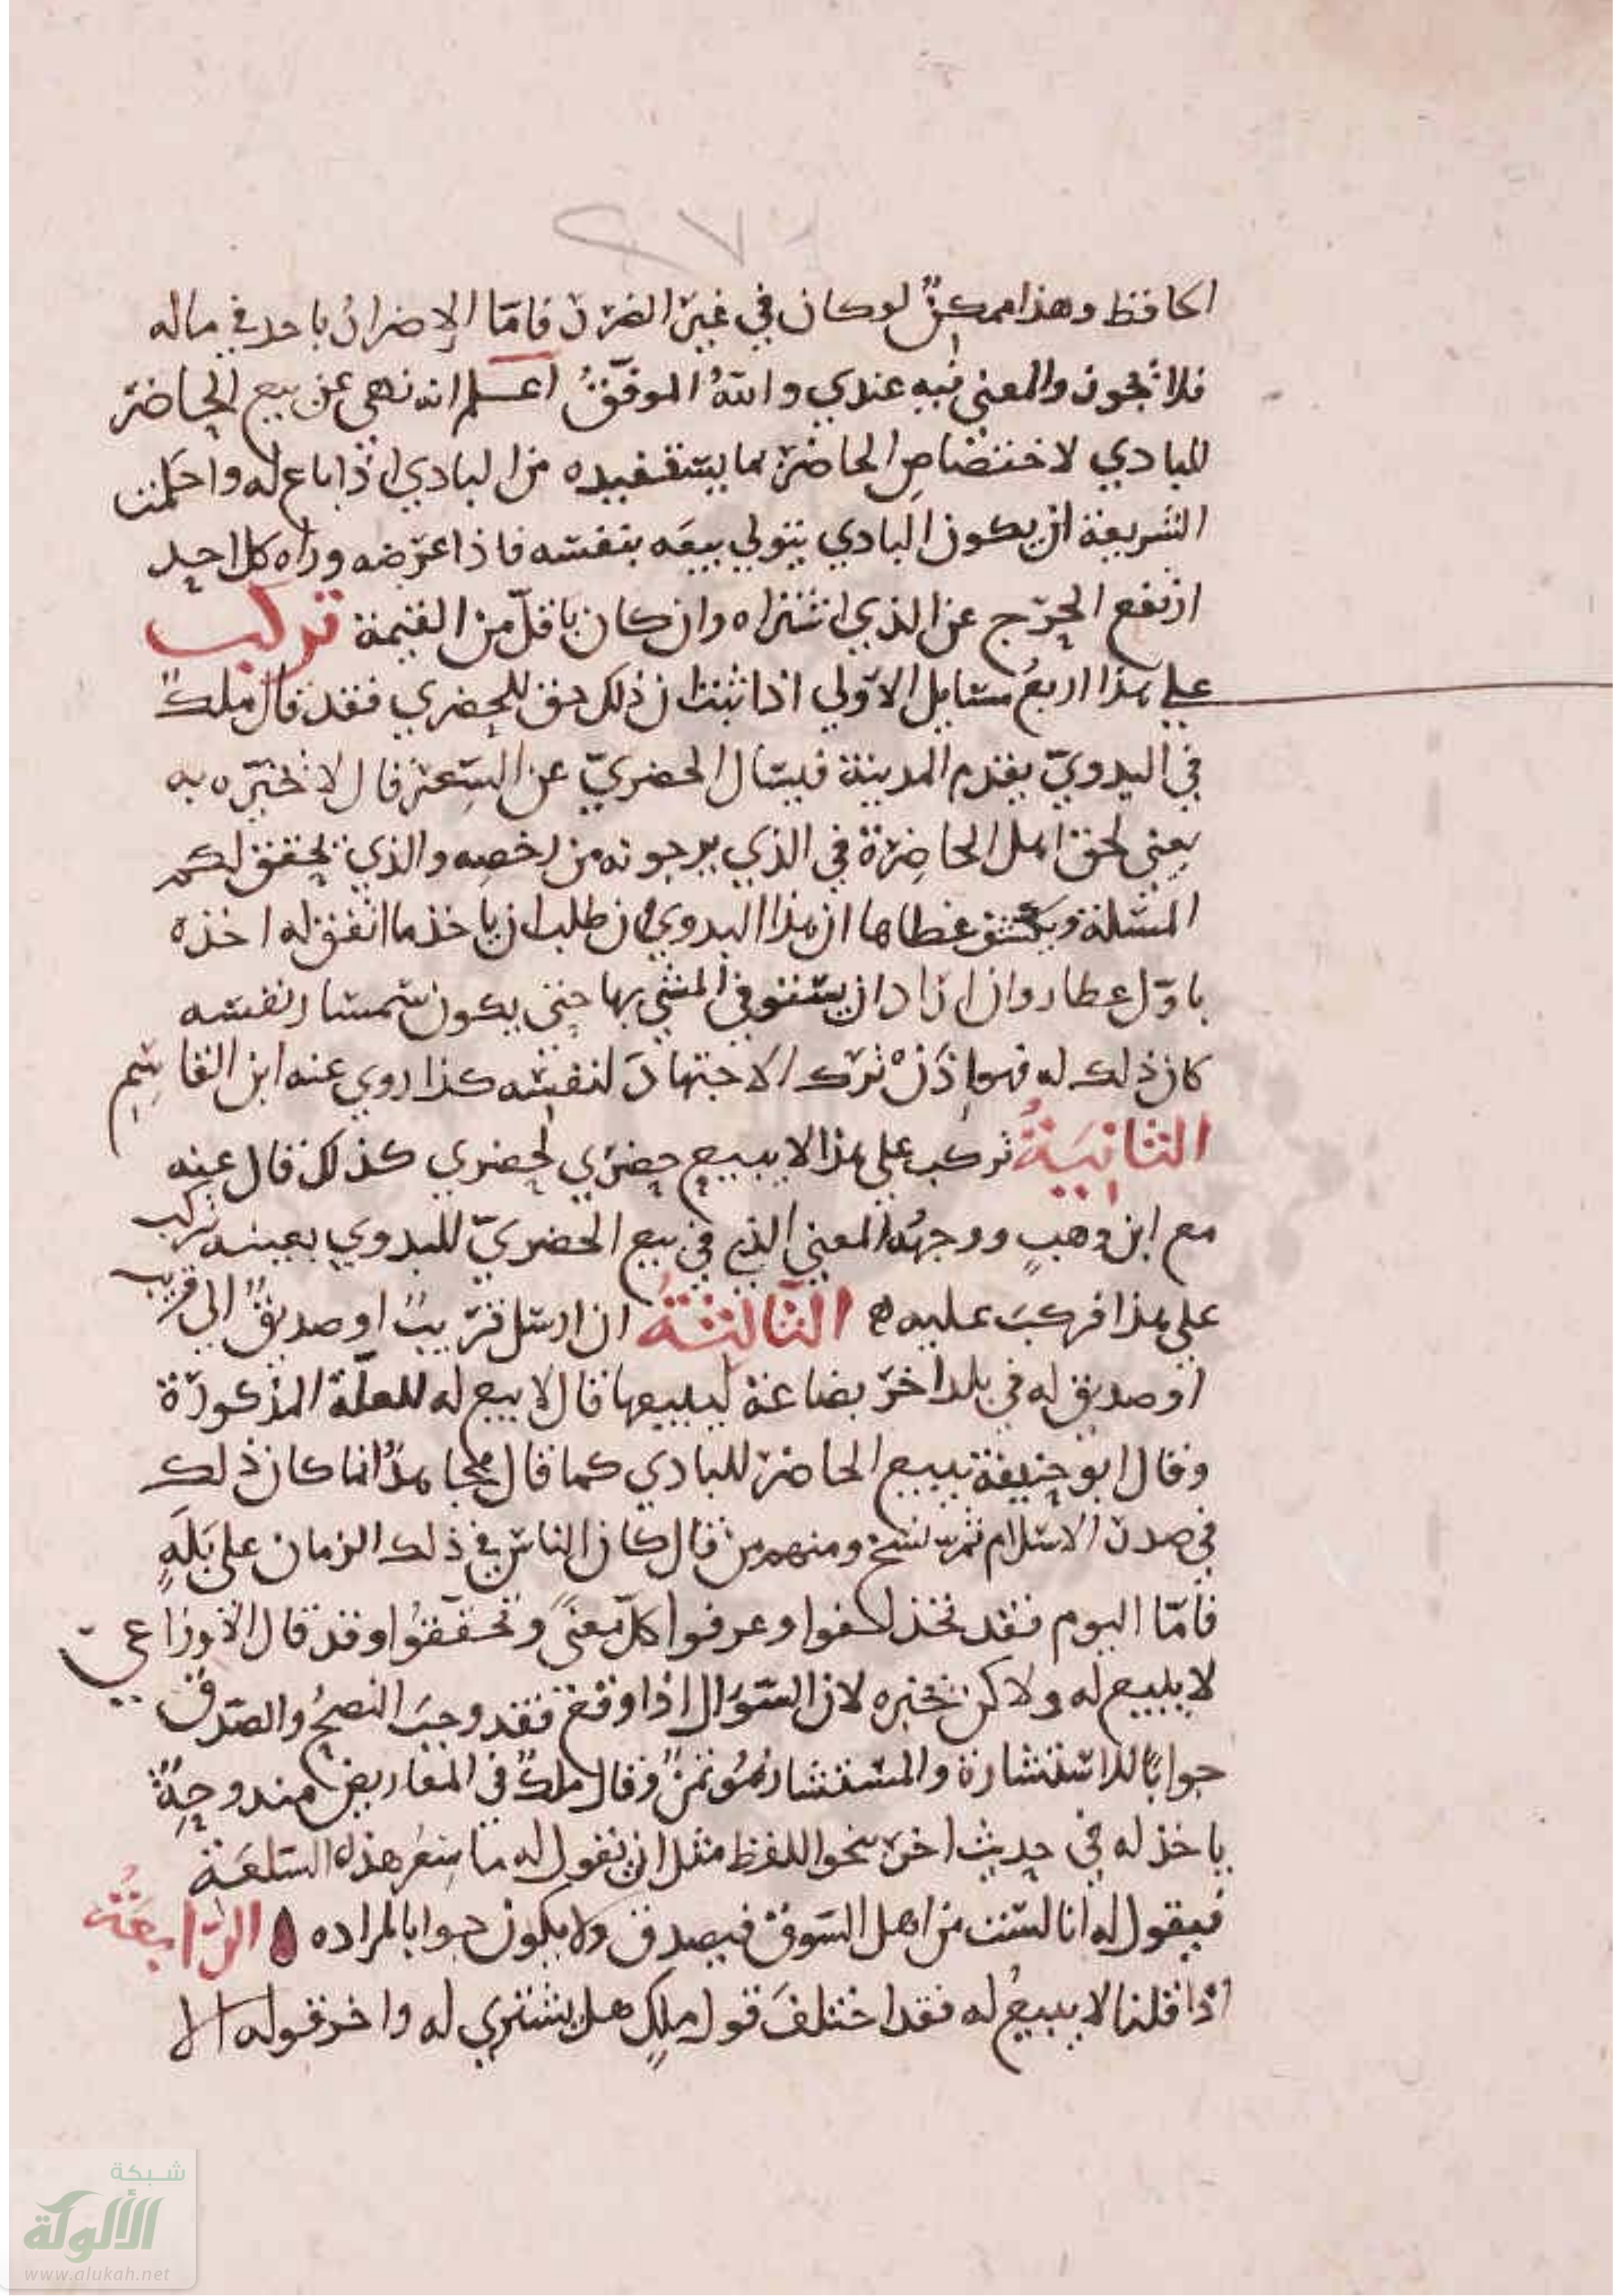 ٢٧١
الحافظ وهذا ممكنٌ لو كان في غير الضرر فامّا الإضرارُ باحد في ماله
فلا يجوز والمعنى فيه عندي واللهُ الموفّقُ اعلم انه نهى عن بيع الحاضر
للبادي لاختصاصِ الحاضر بما يستفيده من البادي اذا باع له واحكمت
الشريعة ان يكون البادي يتولى بيعَه بنفسه فاذا عرّضه وراه كل احد
ارتفع الحرَج عن الذي اشتراه وان كان باقلّ من القيمة تركب
على هذا اربعُ مسايل الاوّلي اذا ثبت ان ذلك حق للحضري فقد قال ملكٌ
في البدويّ يقدم المدينة فيسال الحضريّ عن السِّعر قال لا تخبّره به
يعني لحق اهل الحاضِرة في الذي يرجونه من رخصِه والذي يحقق لكم
المسلة ويكشف غطاها ان هذا البدوي ان طلب ان ياخذ ما اتفق له اخذه
باوّل عطا وان اراد ان يستوفي المشي بها حتى يكون سمسار نفسه
كان ذلك له فهو إذَنْ ترَك الاجتهادَ لنفسه كذا روي عنه ابن القاسِم
الثانِيَةُ تركب على هذا لا يبيع حضري لحضري كذلك قال عنه
مع ابن وهبٍ ووجهُه المعنى الذي في بيع الحضريّ للبدوي بعينه تركب
على هذا فركبَ عليه ه الثالِثةُ ان ارسل قريبٌ او صديقٌ الى قريب
او صديق له في بلد اخر بضاعة ليبيعها قال لا يبيع له للعلّة المذكورة
وقال ابو حنيفة يبيع الحاضر للبادي كما قال مجاهدٌ انما كان ذلك
في صدر الاسلام ثم نسخ ومنهم من قال كان الناس في ذلك الزمان على بَلَهٍ
فامّا اليوم فقد تحذلقوا وعرفوا كلّ معنًى وتحقّقُوا وقد قال الاوزاعيّ
لا يبيع له ولاكن يخبره لان السّوَال اذا وقع فقد وجبَ النصحُ والصّدق
جوابًا للاستشارة والمستشارُ مُوتمنٌ وقال ملكٌ في المعاريض مندوحةٌ
ياخذ له في حديث اخر نحو اللفظ مثل ان يقول له ما سِعر هذه السلعَة
فيقول له انا لست من اهل السّوق فيصدق ولا يكون جوابا لمراده ه الرّابعَةُ
اذا قلنا لا يبيعُ له فقد اختلفَ قول ملكٍ هل يشتري له واخر قوله الا
شبكة
الألوكة
www.alukah.net